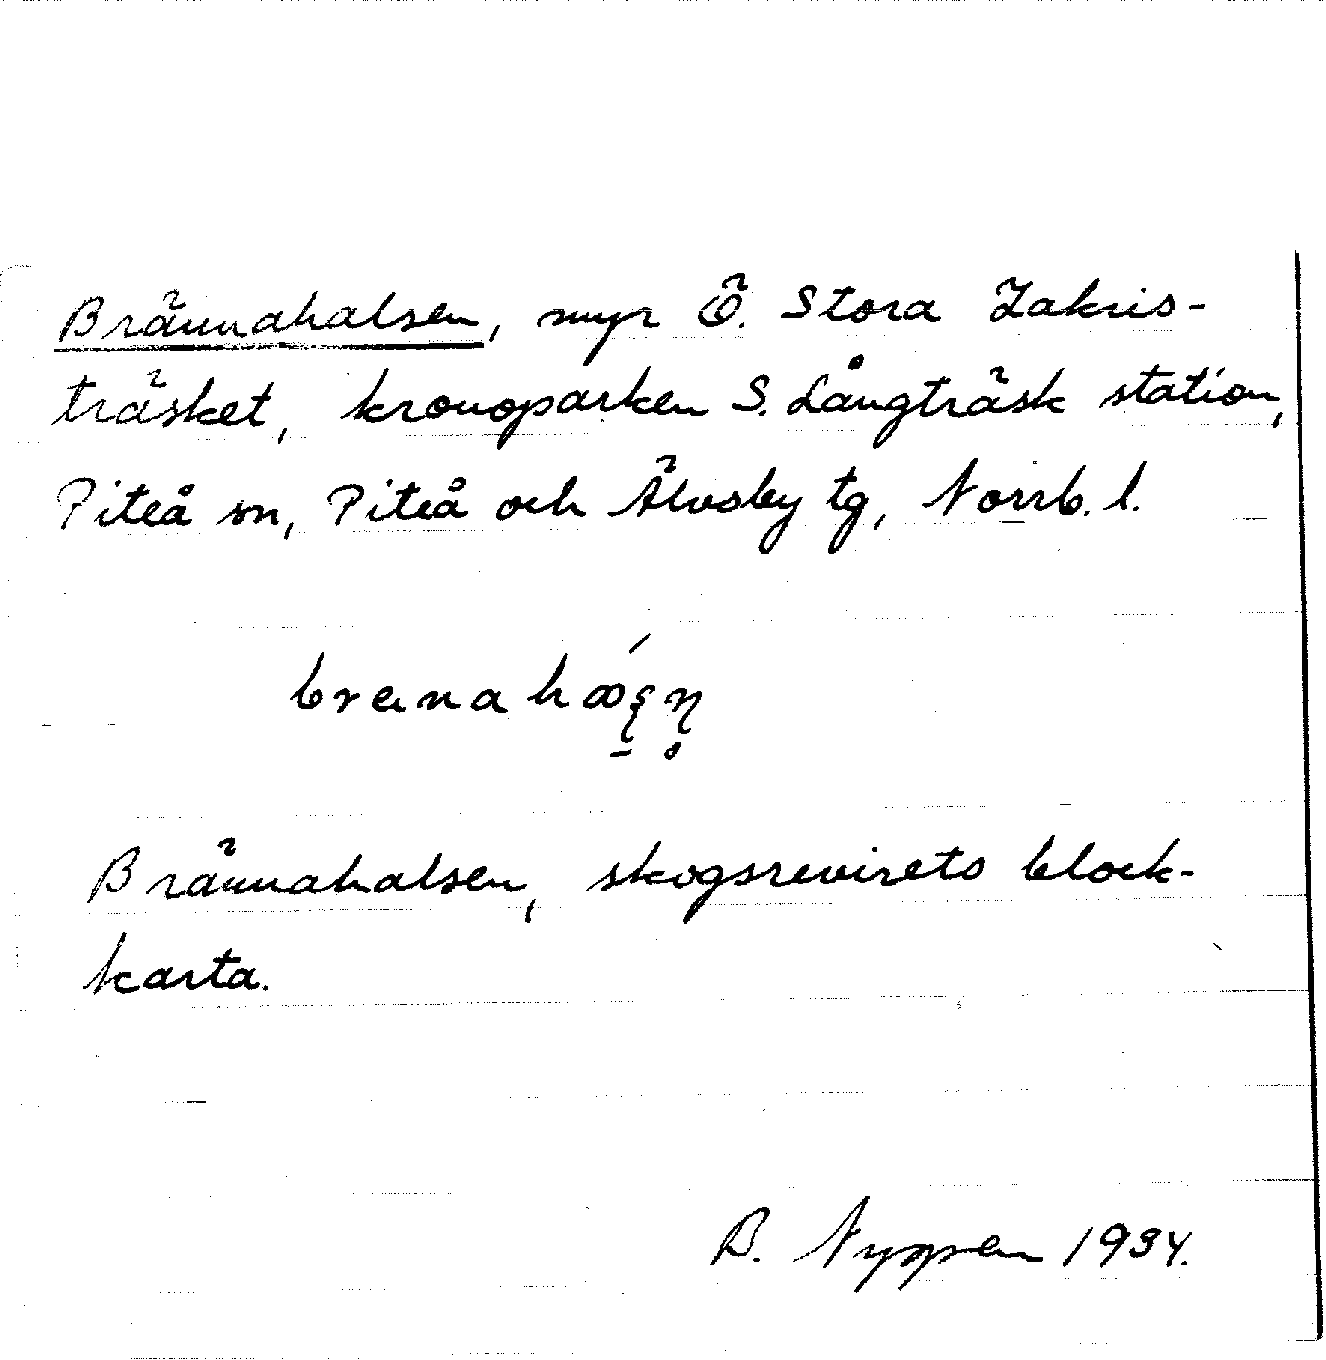 Brännahalsen, myr Ö. Stora Zakris-
träsket, kronoparken S. Långträsk station,
Piteå sn, Piteå och Älvsby tg, Norrb. l.
Brännahalsen, skogsrevirets block-
karta.
B. Nyppen 1934.